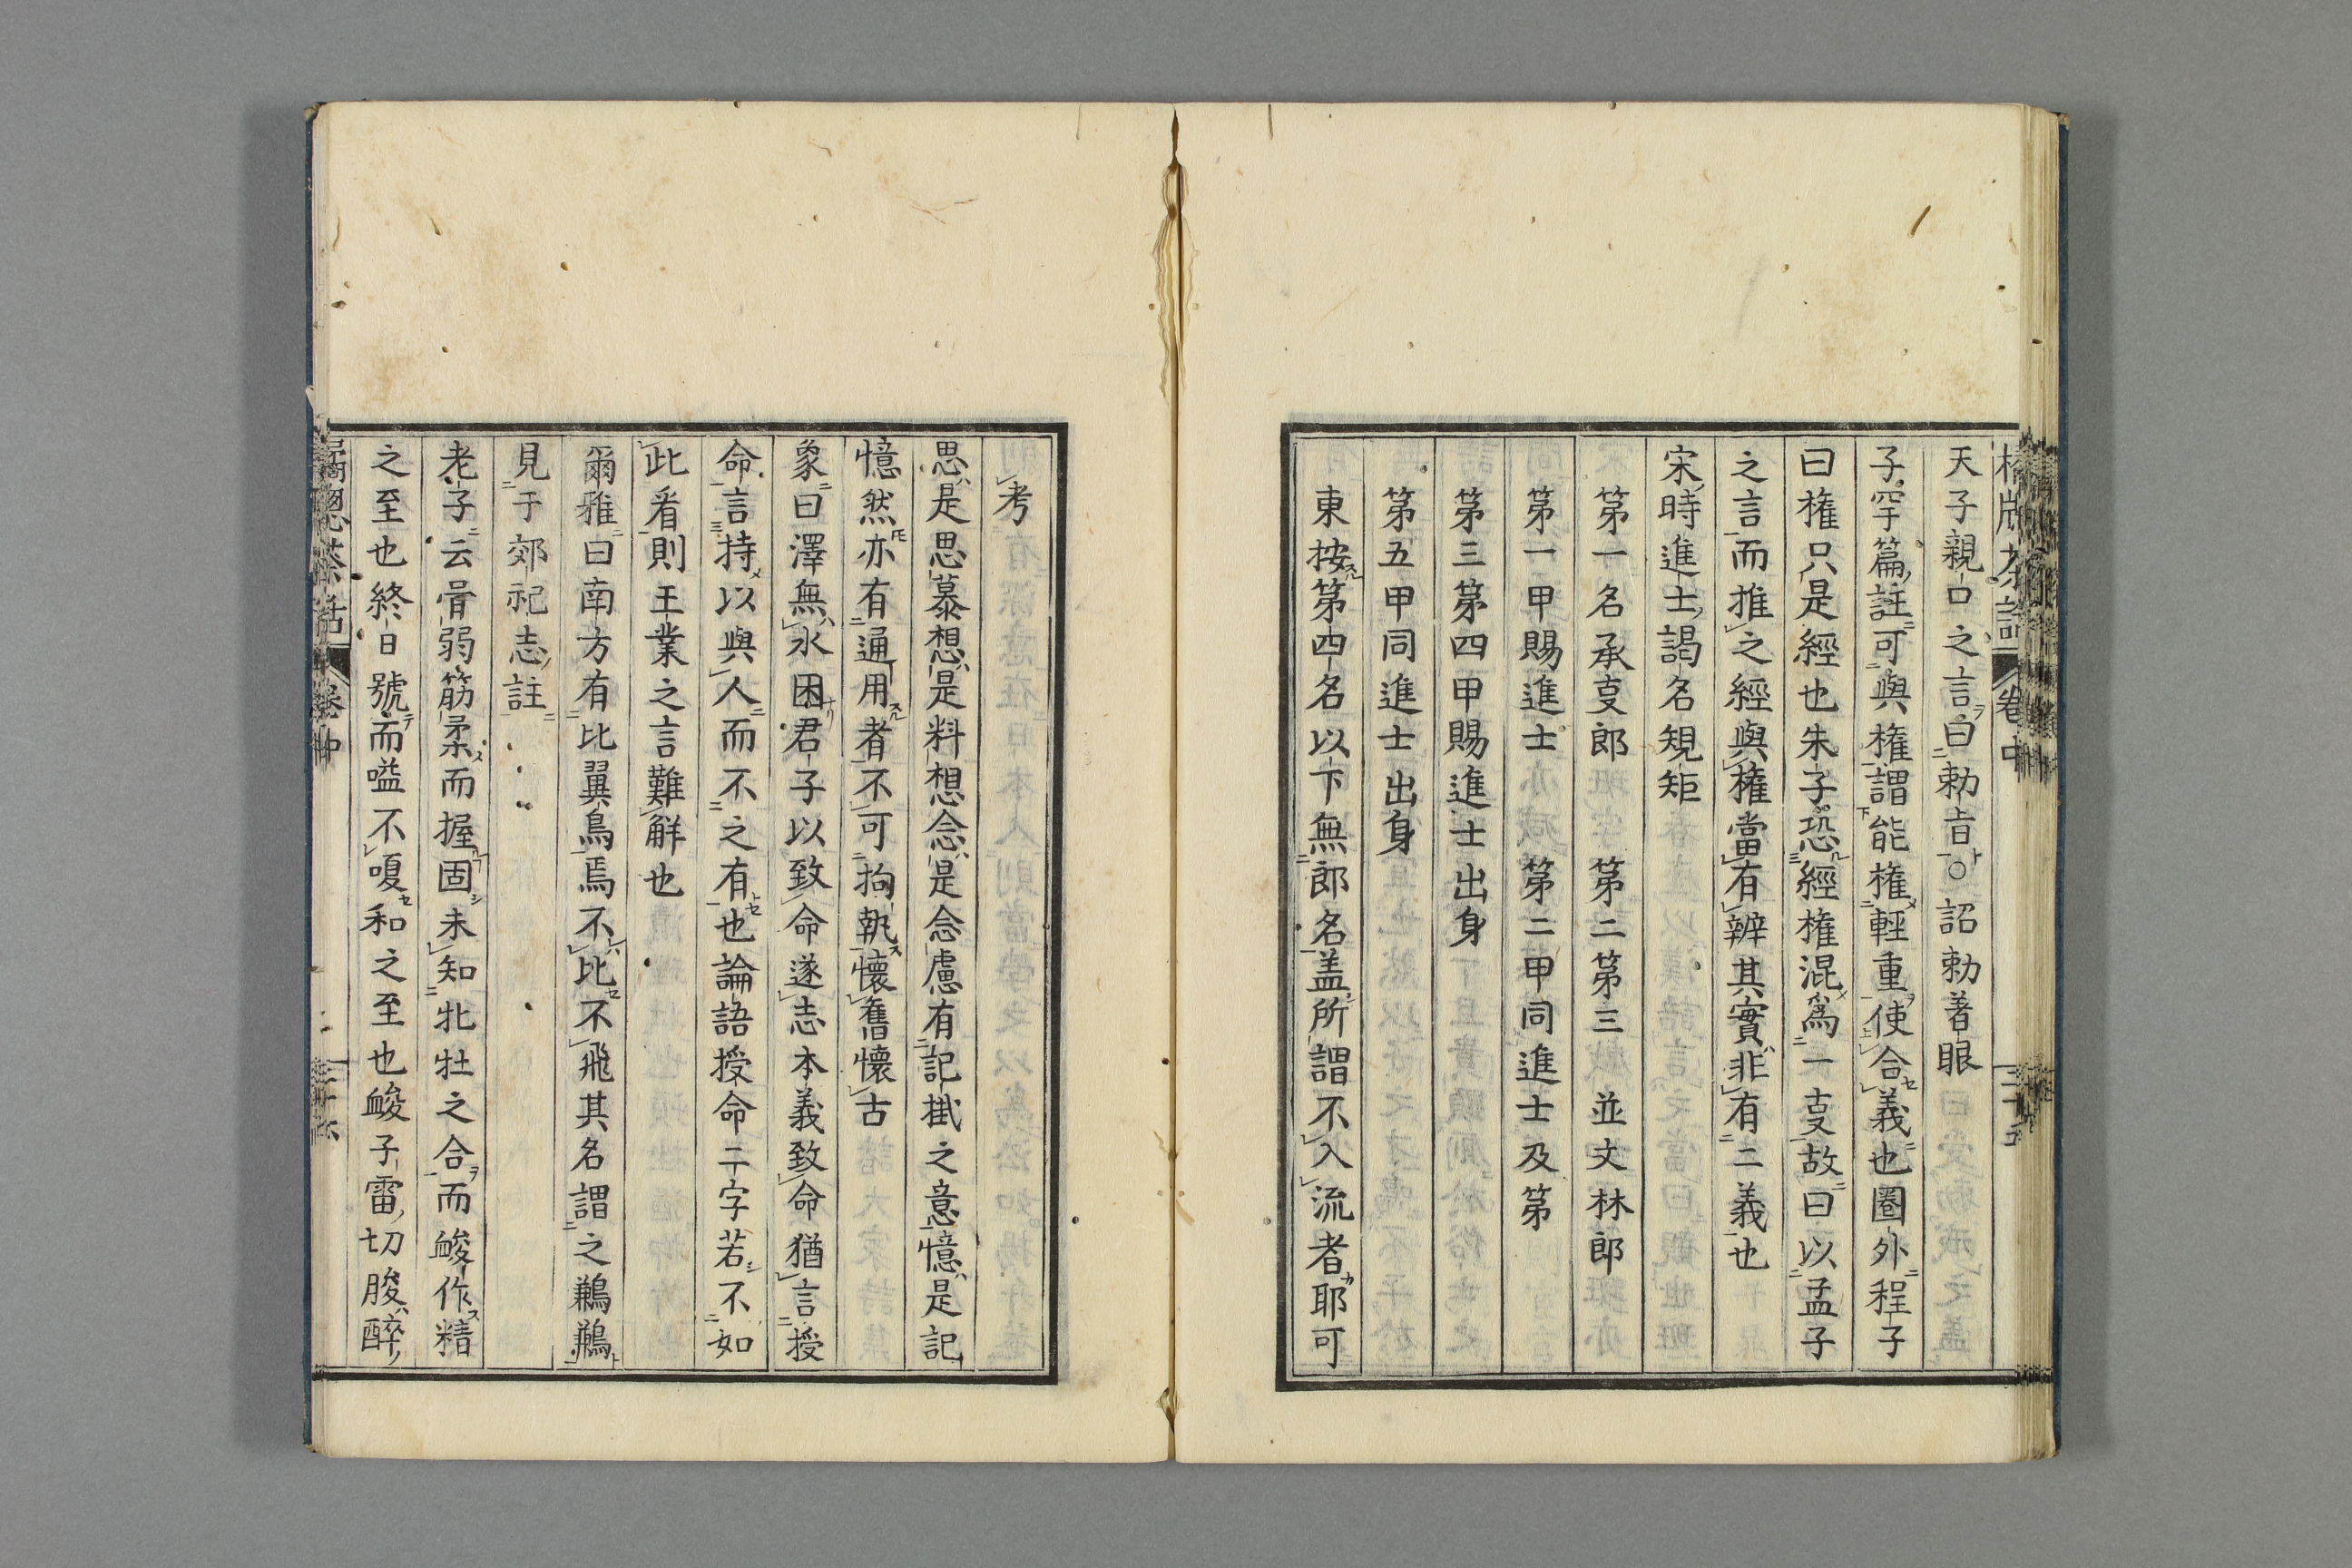 天子親口之言曰勅旨○詔勅著眼
子罕篇註可與權謂能權輕重使合義也圈外程子
曰權只是經也朱子恐經權混爲一叓故曰以孟子
之言而推之經與權當有辨其實非有二義也
宋時進士謁名規矩
第一名承叓郎 第二第三 並文林郎
第一甲賜進士 第二甲同進士及第
第三第四甲賜進士出身
第五甲同進士出身
東按第四名以下無郎名盖所謂不入流者耶可
考
思是思慕想是料想念是念慮有記掛之意憶是記
憶然亦有通用者不可拘執懷舊懷古
象曰澤無水困君子以致命遂志本義致命猶言授
命言持以與人而不之有也論語授命二字若不如
此看則王業之言難解也
爾雅曰南方有比翼鳥焉不比不飛其名謂之鶼鶼
見于郊祀志註
老子云骨弱筋柔而握固未知牝牡之合而峻作精
之至也終日號而嗌不嗄和之至也峻子雷切朘醉